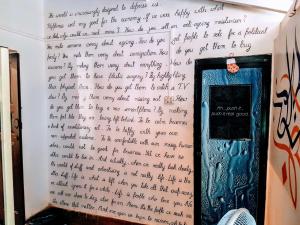 The world is increasingly designed to depress us.
Happiness isn't very good for the economy. If we were happy with what
we had, why would we need more? How do you sell an anti-ageing moisturiser?
You make someone worry about ageing. How do you get people to vote for a political
party? You make them worry about immigration. How do you get them to buy
insurance? By making them worry about everything. How do you
get them to have plastic surgery? By highlighting
their physical flaws. How do you get them to watch a TV
show? By making them worry about missing out. How
do you get them to buy a new smartphone? By making
them feel like they are being left behind. To be calm becomes
a kind of revolutionary act. To be happy with your own
non-upgraded existence. To be comfortable with our messy, human
selves, would not be good for business. Yet we have no
other world to live in. And actually, when we really look closely,
the world of stuff and advertising is not really life. Life is the
other stuff. Life is what is left when you take all that crap away,
or at least ignore it for a while. Life is
Mr. push it,
push it real good.